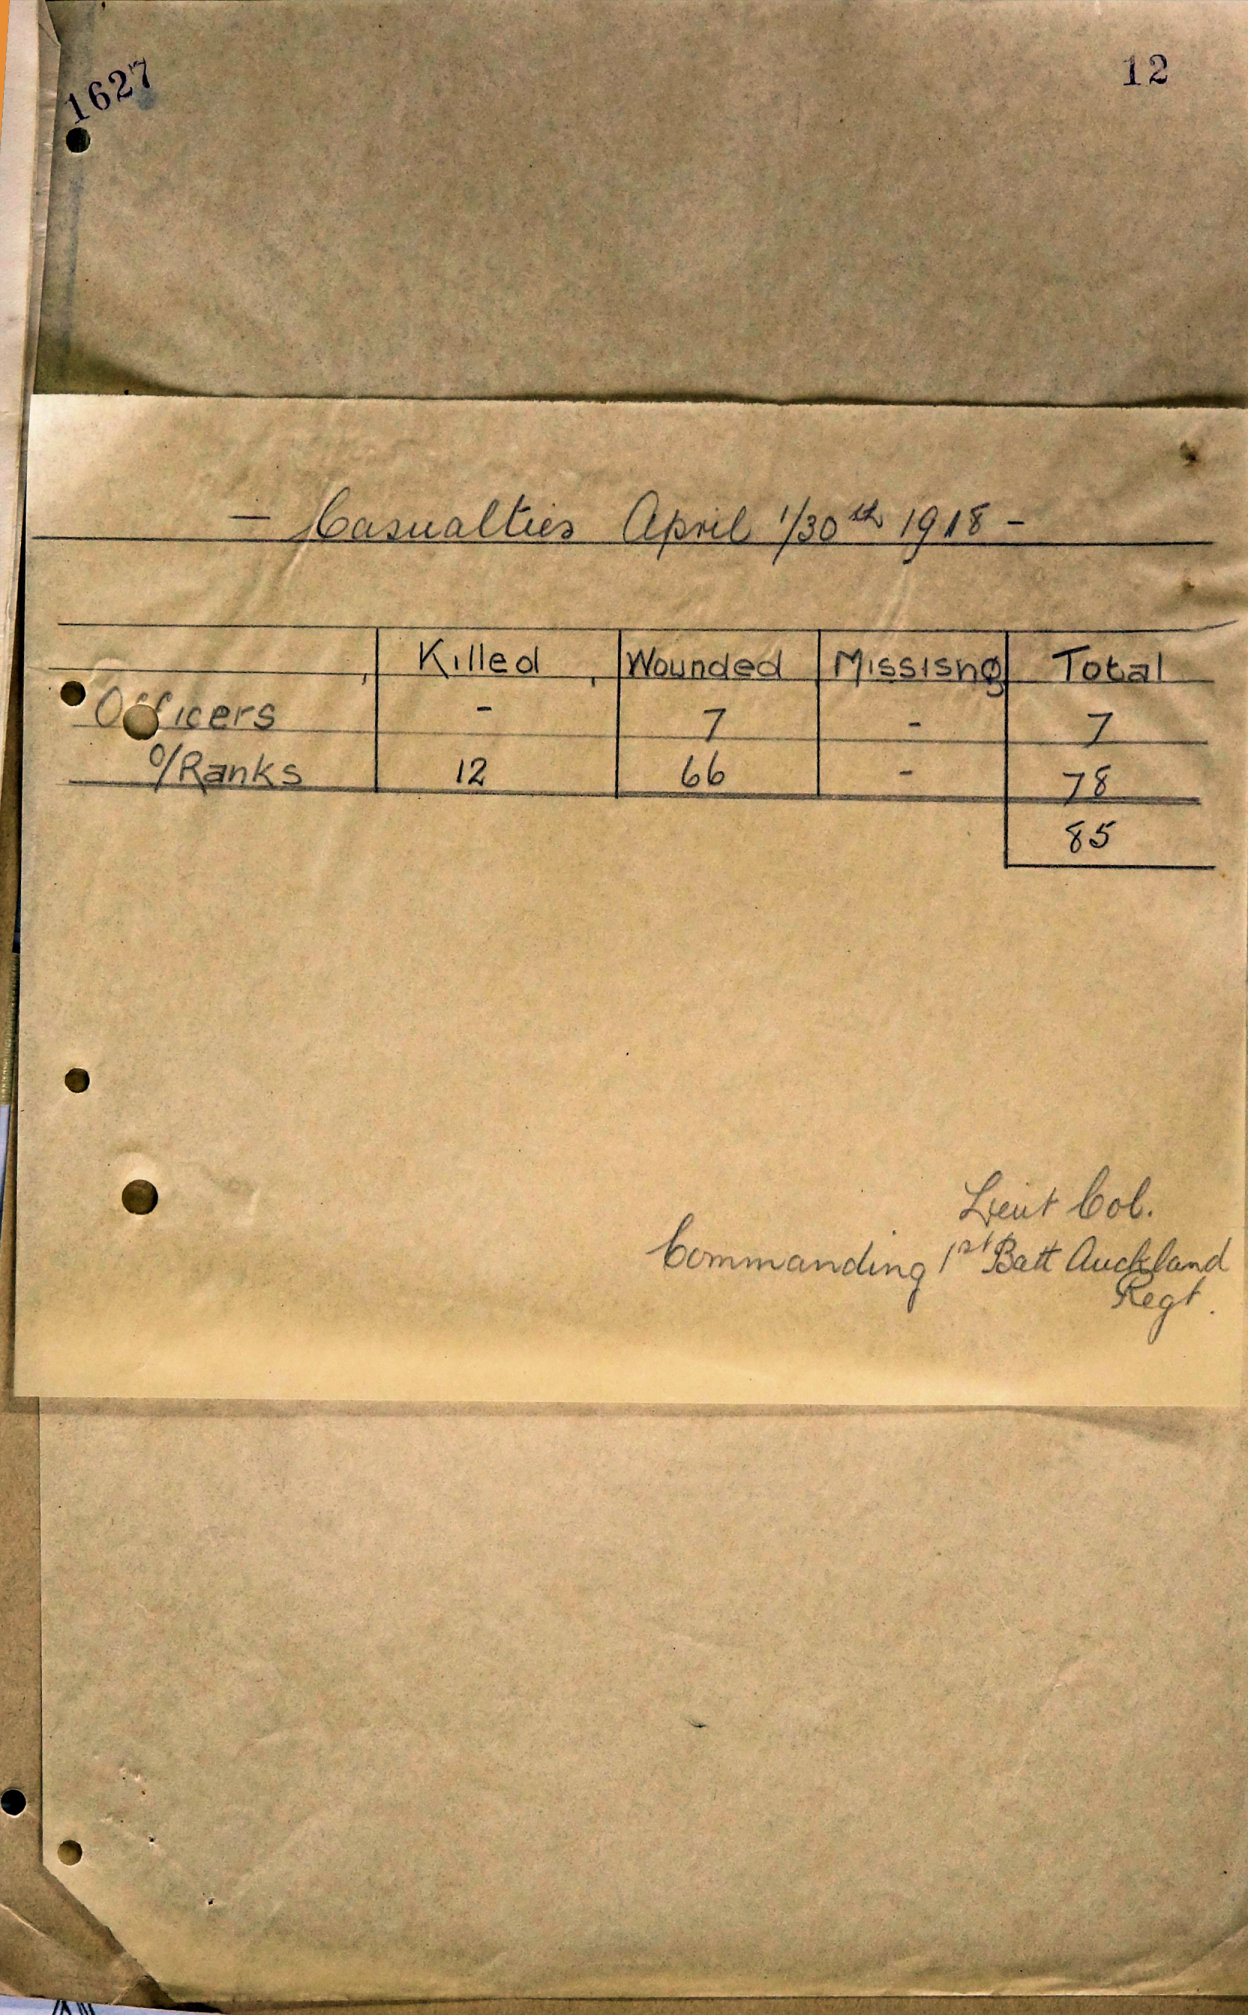 1627
12
— Casualties April 1/30th 1918 –
Killed Wounded Missisng Total
Officers - 7 - 7
o/Ranks 12 66 - 78
85
Lieut Col.
Commanding 1st Batt Auckland
Regt.